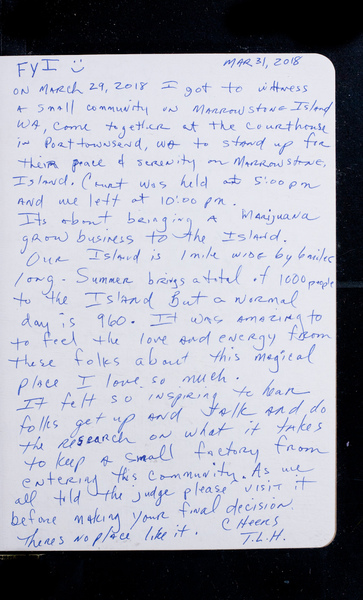 FYI :) MAR 31, 2018
ON MARCH 29, 2018 I got to witness
A small community on MARROWSTONE Island
WA, come together at the courthouse
in Port Townsend, WA to stand up for
their peace & serenity on MARROWSTONE,
Island. Court was held at 5:00 pm
AND we left at 10:00 pm.
Its about bringing A Marijuana
grow business to the Island.
Our Island is 1 mile wide by 6 miles
long. Summer brings a total of 1000 people
to the Island But a normal
day is 960. It was amazing to
to feel the love and energy from
these folks about this magical
place I love so much.
It felt so inspiring to hear
folks get up AND talk AND do
the research on what it takes
to keep a small factory from
entering this community. As we
all told the judge please visit it
before making your final decision.
Theres no place like it. Cheers
T.L.H.